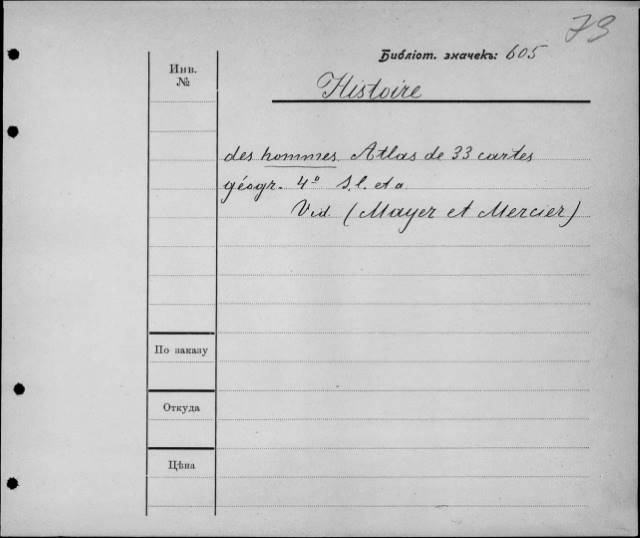 73
Библіот. значекъ: 605
Инв.
№
Histoire
des hommes. Atlas de 33 cartes
géogr. 4º S.l. et a
Vid. (Mayer et Mercier)
По заказу
Откуда
Цѣна